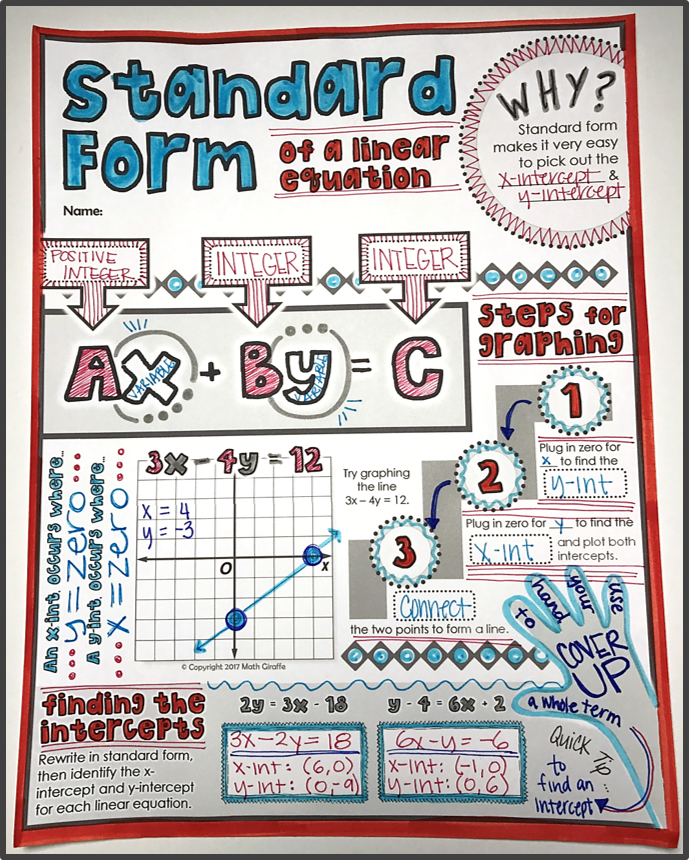 Standard
Form
of a linear
equation
Name:
WHY?
Standard form
makes it very easy
to pick out the
x-intercept &
y-intercept
POSITIVE
INTEGER
INTEGER
INTEGER
Ax + By = C
VARIABLE
VARIABLE
steps for
graphing
1
Plug in zero for
x to find the
y-int
2
Plug in zero for y to find the
x-int and plot both
intercepts.
3
Connect
the two points to form a line.
Try graphing
the line
3x – 4y = 12.
3x – 4y = 12
x = 4
y = -3
O
x
© Copyright 2017 Math Giraffe
An x-int occurs where...
y = zero
A y-int occurs where...
x = zero
finding the
intercepts
Rewrite in standard form,
then identify the x-
intercept and y-intercept
for each linear equation.
2y = 3x - 18
3x – 2y = 18
x-int: (6,0)
y-int: (0,-9)
y - 4 = 6x + 2
6x – y = -6
x-int: (-1,0)
y-int: (0,6)
use
your
hand
to
COVER
UP
a whole term
Quick Tip
to
find an
intercept